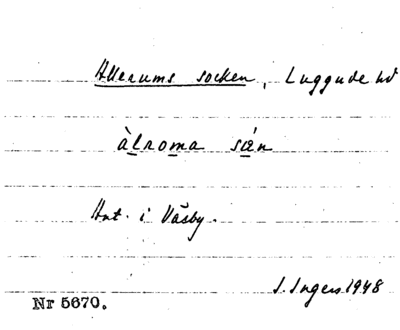 Allerums socken, Luggude hd
àlroma sǽn
Ant. i Väsby.
I. Ingers 1948
Nr 5670.